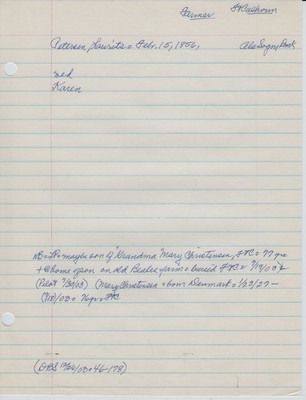 Farmer Ft Calhoun
Petersen, Laurits = Febr. 15, 1856, Also Sogn, Denk
wed
Karen
NB = LP = maybe son of "Grandma" Mary Christensen, FtC = 77 yrs
+ @ home of son on old Beales farm = buried FtC = 9/19/03
(Pilot 9/24/03) (Mary Christensen = born Denmark = 1/22/27 —
9/18/03 = 76 yrs = FtC
(DBS 12/26/03 = 46-178)